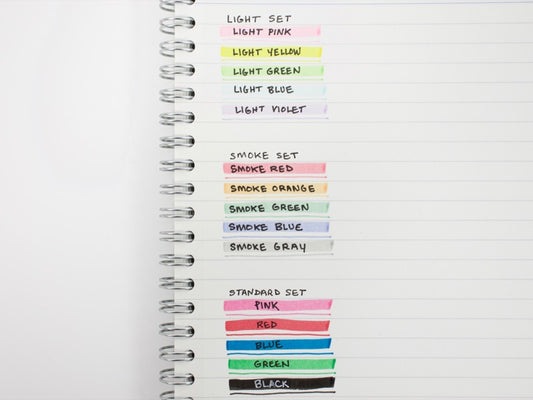 LIGHT SET
LIGHT PINK
LIGHT YELLOW
LIGHT GREEN
LIGHT BLUE
LIGHT VIOLET
SMOKE SET
SMOKE RED
SMOKE ORANGE
SMOKE GREEN
SMOKE BLUE
SMOKE GRAY
STANDARD SET
PINK
RED
BLUE
GREEN
BLACK